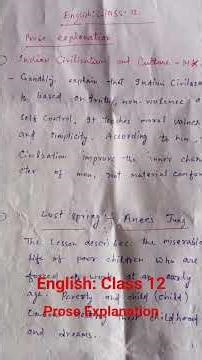 English: Class: 12
Prose explanation
Indian Civilization and Culture - M.K.
- Gandhiji explain that Indian Civiliza
is based on truth, non-violence a
Self Control. It teaches moral values
and simplicity. According to him,
Civilization improve the inner chara
cter of men, not material comfor
Lost Spring - Anees Jung
The Lesson describes the miserable
life of poor children who are
forced to work at an early
age. Poverty and child (child)
childhood
and dreams.
English: Class 12
Prose Explanation